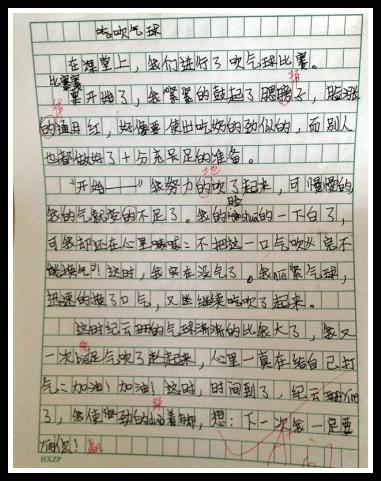 吃吹气球
在课堂上，我们进行了吹气球比赛。
比赛
开始了，我紧紧的鼓起了腮膀子，脸涨
的通红，好像要使出吃奶的劲似的，而别人
也都做好了十分充足的准备。
“开始——”我努力的吹了起来，可慢慢的
地
我的气就变的不足了。我的脸shua的一下白了，
可我却还在心里喊：不把这一口气吹 完不
能换气！这时，我实在没气了。我 紧气球，
迅速的换了口气，又继续吃吹了起来。
这时纪云 的气球渐渐的比我大了，我又
一次 足气吹了起来，心里一直在给自己打
气：加油！加油！这时，时间到了，纪云
了，我使劲的duo着脚，想：下一次我一定要
你！
赢
HXZP